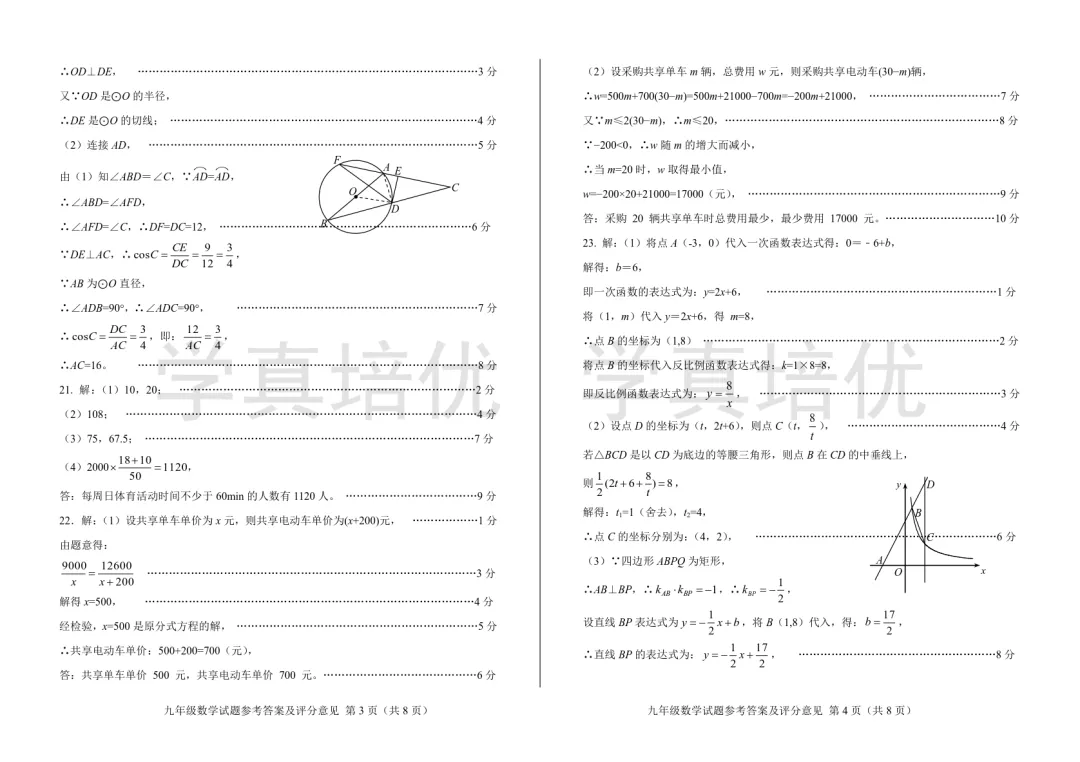 ∴OD⊥DE， ……3 分
又∵OD 是⊙O 的半径，
∴DE 是⊙O 的切线； ……4 分
（2）连接 AD， ……5 分
由（1）知∠ABD＝∠C，∵AD=AD，
∴∠ABD=∠AFD，
∴∠AFD=∠C，∴DF=DC=12， ……6 分
∵DE⊥AC，∴cosC = CE/DC = 9/12 = 3/4，
∵AB 为⊙O 直径，
∴∠ADB=90°，∴∠ADC=90°， ……7 分
∴cosC = DC/AC = 3/4，即：12/AC = 3/4，
∴AC=16。 ……8 分
F
A
E
O
C
D
B
21. 解：（1）10，20； ……2 分
（2）108； ……4 分
（3）75，67.5； ……7 分
（4）2000×(18+10)/50=1120，
答：每周日体育活动时间不少于 60min 的人数有 1120 人。 ……9 分
22．解：（1）设共享单车单价为 x 元，则共享电动车单价为(x+200)元， ……1 分
由题意得：
9000/x = 12600/(x+200) ……3 分
解得 x=500， ……4 分
经检验，x=500 是原分式方程的解， ……5 分
∴共享电动车单价：500+200=700（元），
答：共享单车单价 500 元，共享电动车单价 700 元。……6 分
九年级数学试题参考答案及评分意见 第 3 页（共 8 页）
（2）设采购共享单车 m 辆，总费用 w 元，则采购共享电动车(30−m)辆，
∴w=500m+700(30−m)=500m+21000−700m=−200m+21000， ……7 分
又∵m≤2(30−m)，∴m≤20，……8 分
∵−200<0，∴w 随 m 的增大而减小，
∴当 m=20 时，w 取得最小值，
w=−200×20+21000=17000（元）， ……9 分
答：采购 20 辆共享单车时总费用最少，最少费用 17000 元。……10 分
23. 解：（1）将点 A（-3，0）代入一次函数表达式得：0＝﹣6+b，
解得：b＝6，
即一次函数的表达式为：y=2x+6， ……1 分
将（1，m）代入 y＝2x+6，得 m=8，
∴点 B 的坐标为（1,8） ……2 分
将点 B 的坐标代入反比例函数表达式得：k=1×8=8，
即反比例函数表达式为：y = 8/x， ……3 分
（2）设点 D 的坐标为（t，2t+6），则点 C（t，8/t）， ……4 分
若△BCD 是以 CD 为底边的等腰三角形，则点 B 在 CD 的中垂线上，
则 1/2(2t+6+8/t)=8，
解得：t₁=1（舍去），t₂=4，
∴点 C 的坐标分别为：（4，2）， ……6 分
（3）∵四边形 ABPQ 为矩形，
∴AB⊥BP，∴k_AB·k_BP=−1，∴k_BP=−1/2，
设直线 BP 表达式为 y=−1/2x+b，将 B（1,8）代入，得：b=17/2，
∴直线 BP 的表达式为：y=−1/2x+17/2， ……8 分
y
D
B
C
A
O
x
九年级数学试题参考答案及评分意见 第 4 页（共 8 页）
学真培优
学真培优